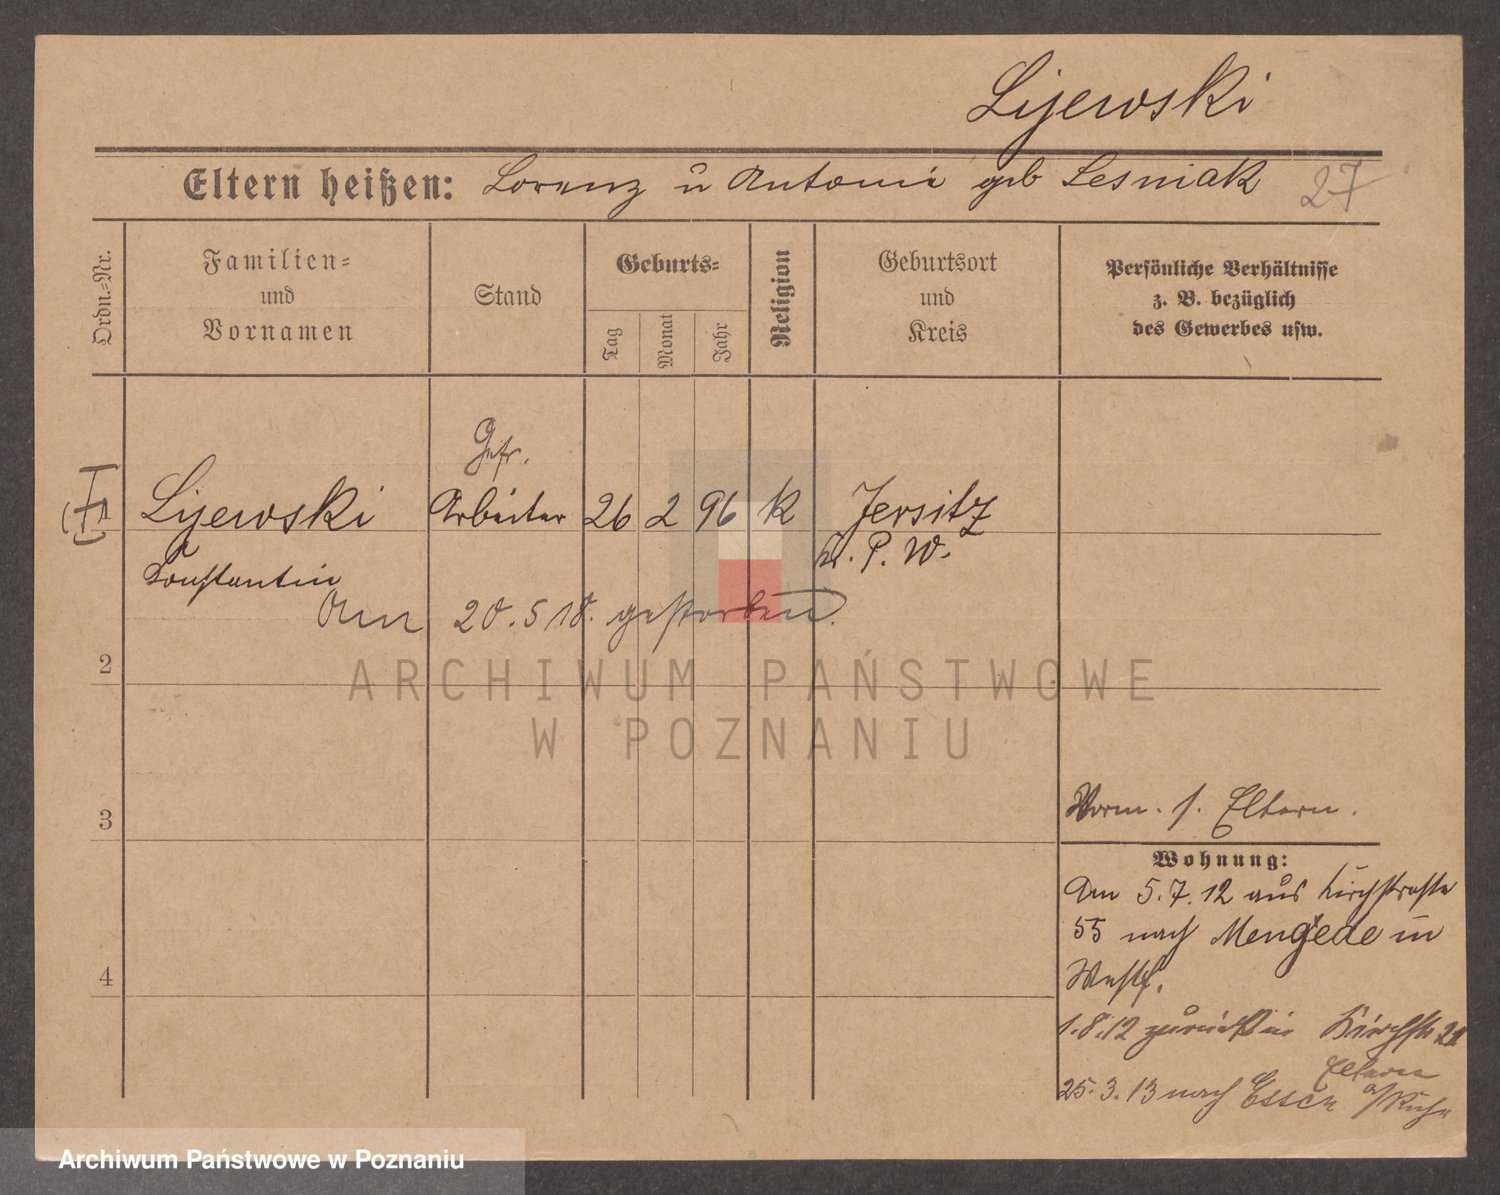 Lijewski
Eltern heißen: Lorenz u Antonie geb Lesniak
27
Ordn.-Nr.
Familien-
und
Vornamen
Stand
Geburts-
Tag
Monat
Jahr
Religion
Geburtsort
und
Kreis
Persönliche Verhältnisse
z. B. bezüglich
des Gewerbes usw.
Gefr.
1 Lijewski Arbeiter 26 2 96 K Jersitz
Constantin Kr. P. W.
Am 20.5 18. gestorben.
2
ARCHIWUM PAŃSTWOWE
W POZNANIU
3
Vorm. s. Eltern.
Wohnung:
Am 5.7.12 aus Kirchstraße
55 nach Mengede in
Westf.
4
1.8.12 zurück in Kirchstr 21
Eltern
25.3.13 nach Essen a/Ruhr
Archiwum Państwowe w Poznaniu